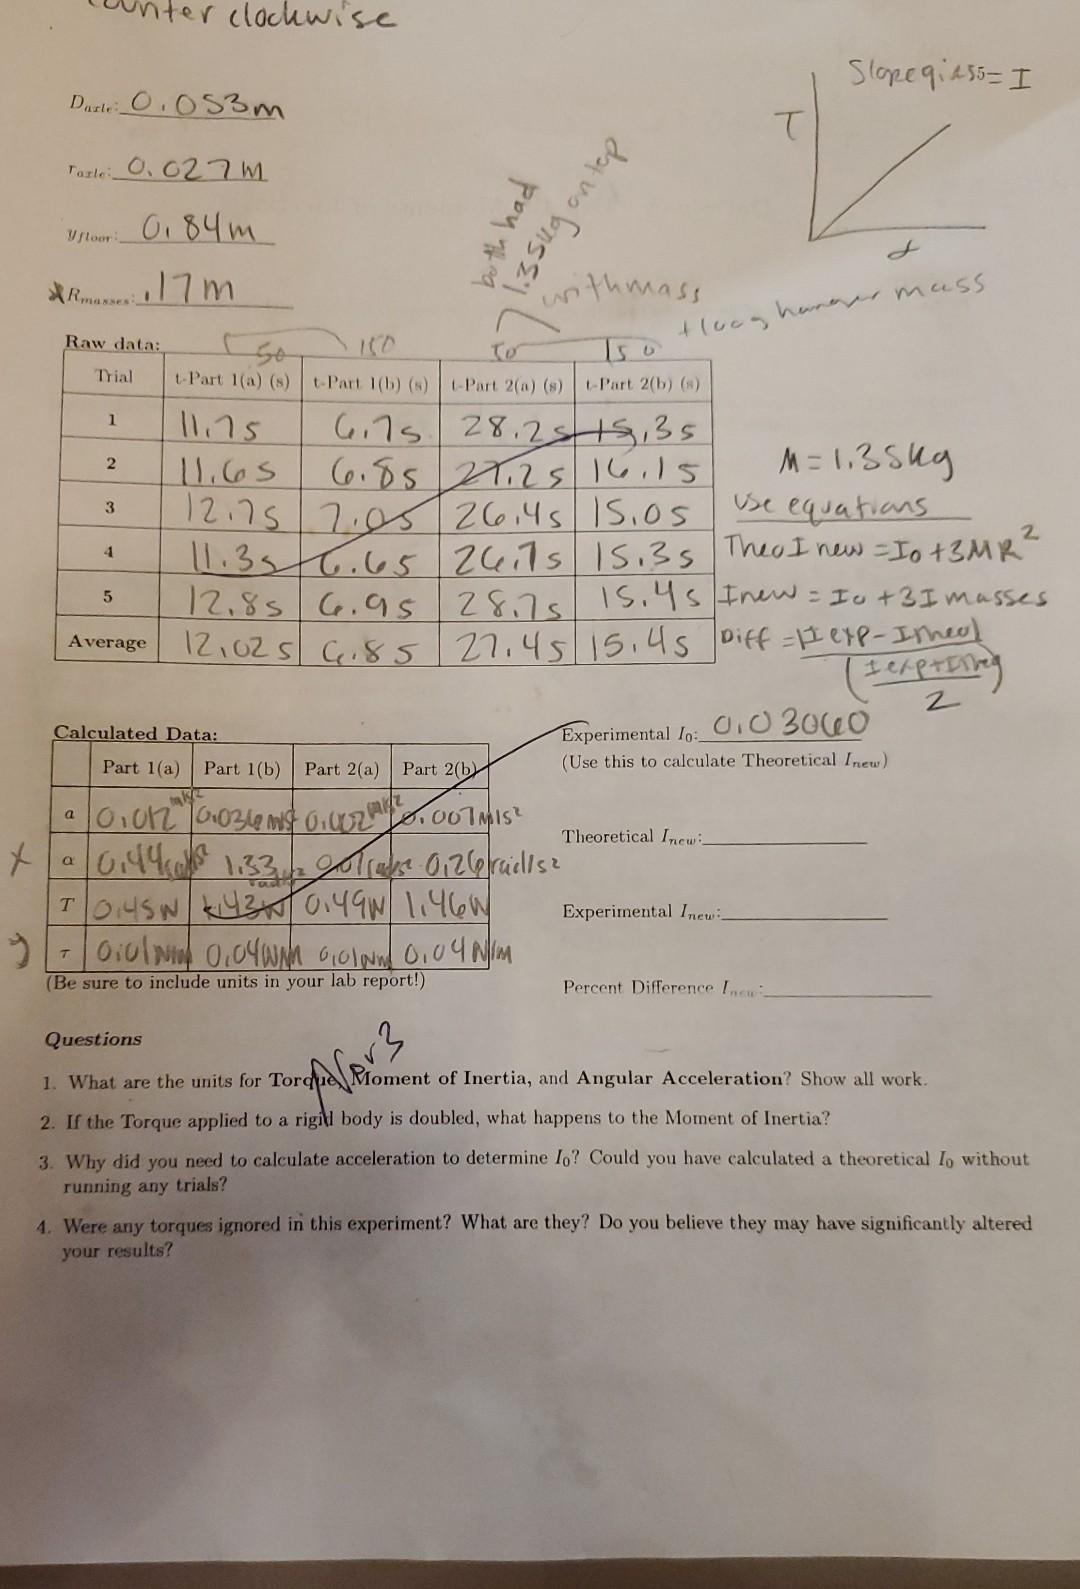 counter clockwise
Slope gives = I
T
α
D_axle: 0.053m
r_axle: 0.027m
y_floor: 0.84m
R_masses: .17m
both had
1.35kg on top
with mass
+100g hanger mass
Raw data:
50 150 50 150
Trial t-Part 1(a) (s) t-Part 1(b) (s) t-Part 2(a) (s) t-Part 2(b) (s)
1 11.7s 6.7s 28.2s 15.3s
2 11.6s 6.8s 27.2s 16.1s
3 12.7s 7.0s 26.4s 15.0s
4 11.3s 6.6s 26.7s 15.3s
5 12.8s 6.9s 28.7s 15.4s
Average 12.02s 6.8s 27.4s 15.4s
M = 1.35kg
use equations
Theo I new = I0 + 3MR²
Inew = I0 + 3I masses
Diff = |I exp - I theo|
(I exp + I theo)
2
Calculated Data:
Part 1(a) Part 1(b) Part 2(a) Part 2(b)
a 0.012 m/s² 0.036 m/s² 0.002 m/s² 0.007 m/s²
x α 0.44 rad/s² 1.33 rad/s² 0.07 rad/s² 0.26 rad/s²
T 0.45N 1.43N 0.49N 1.46N
y τ 0.01Nm 0.04Nm 0.01Nm 0.04Nm
(Be sure to include units in your lab report!)
Experimental I0: 0.03060
(Use this to calculate Theoretical Inew)
Theoretical Inew:
Experimental Inew:
Percent Difference Inew:
Questions
1. What are the units for Torque, Moment of Inertia, and Angular Acceleration? Show all work.
2. If the Torque applied to a rigid body is doubled, what happens to the Moment of Inertia?
3. Why did you need to calculate acceleration to determine I0? Could you have calculated a theoretical I0 without
running any trials?
4. Were any torques ignored in this experiment? What are they? Do you believe they may have significantly altered
your results?